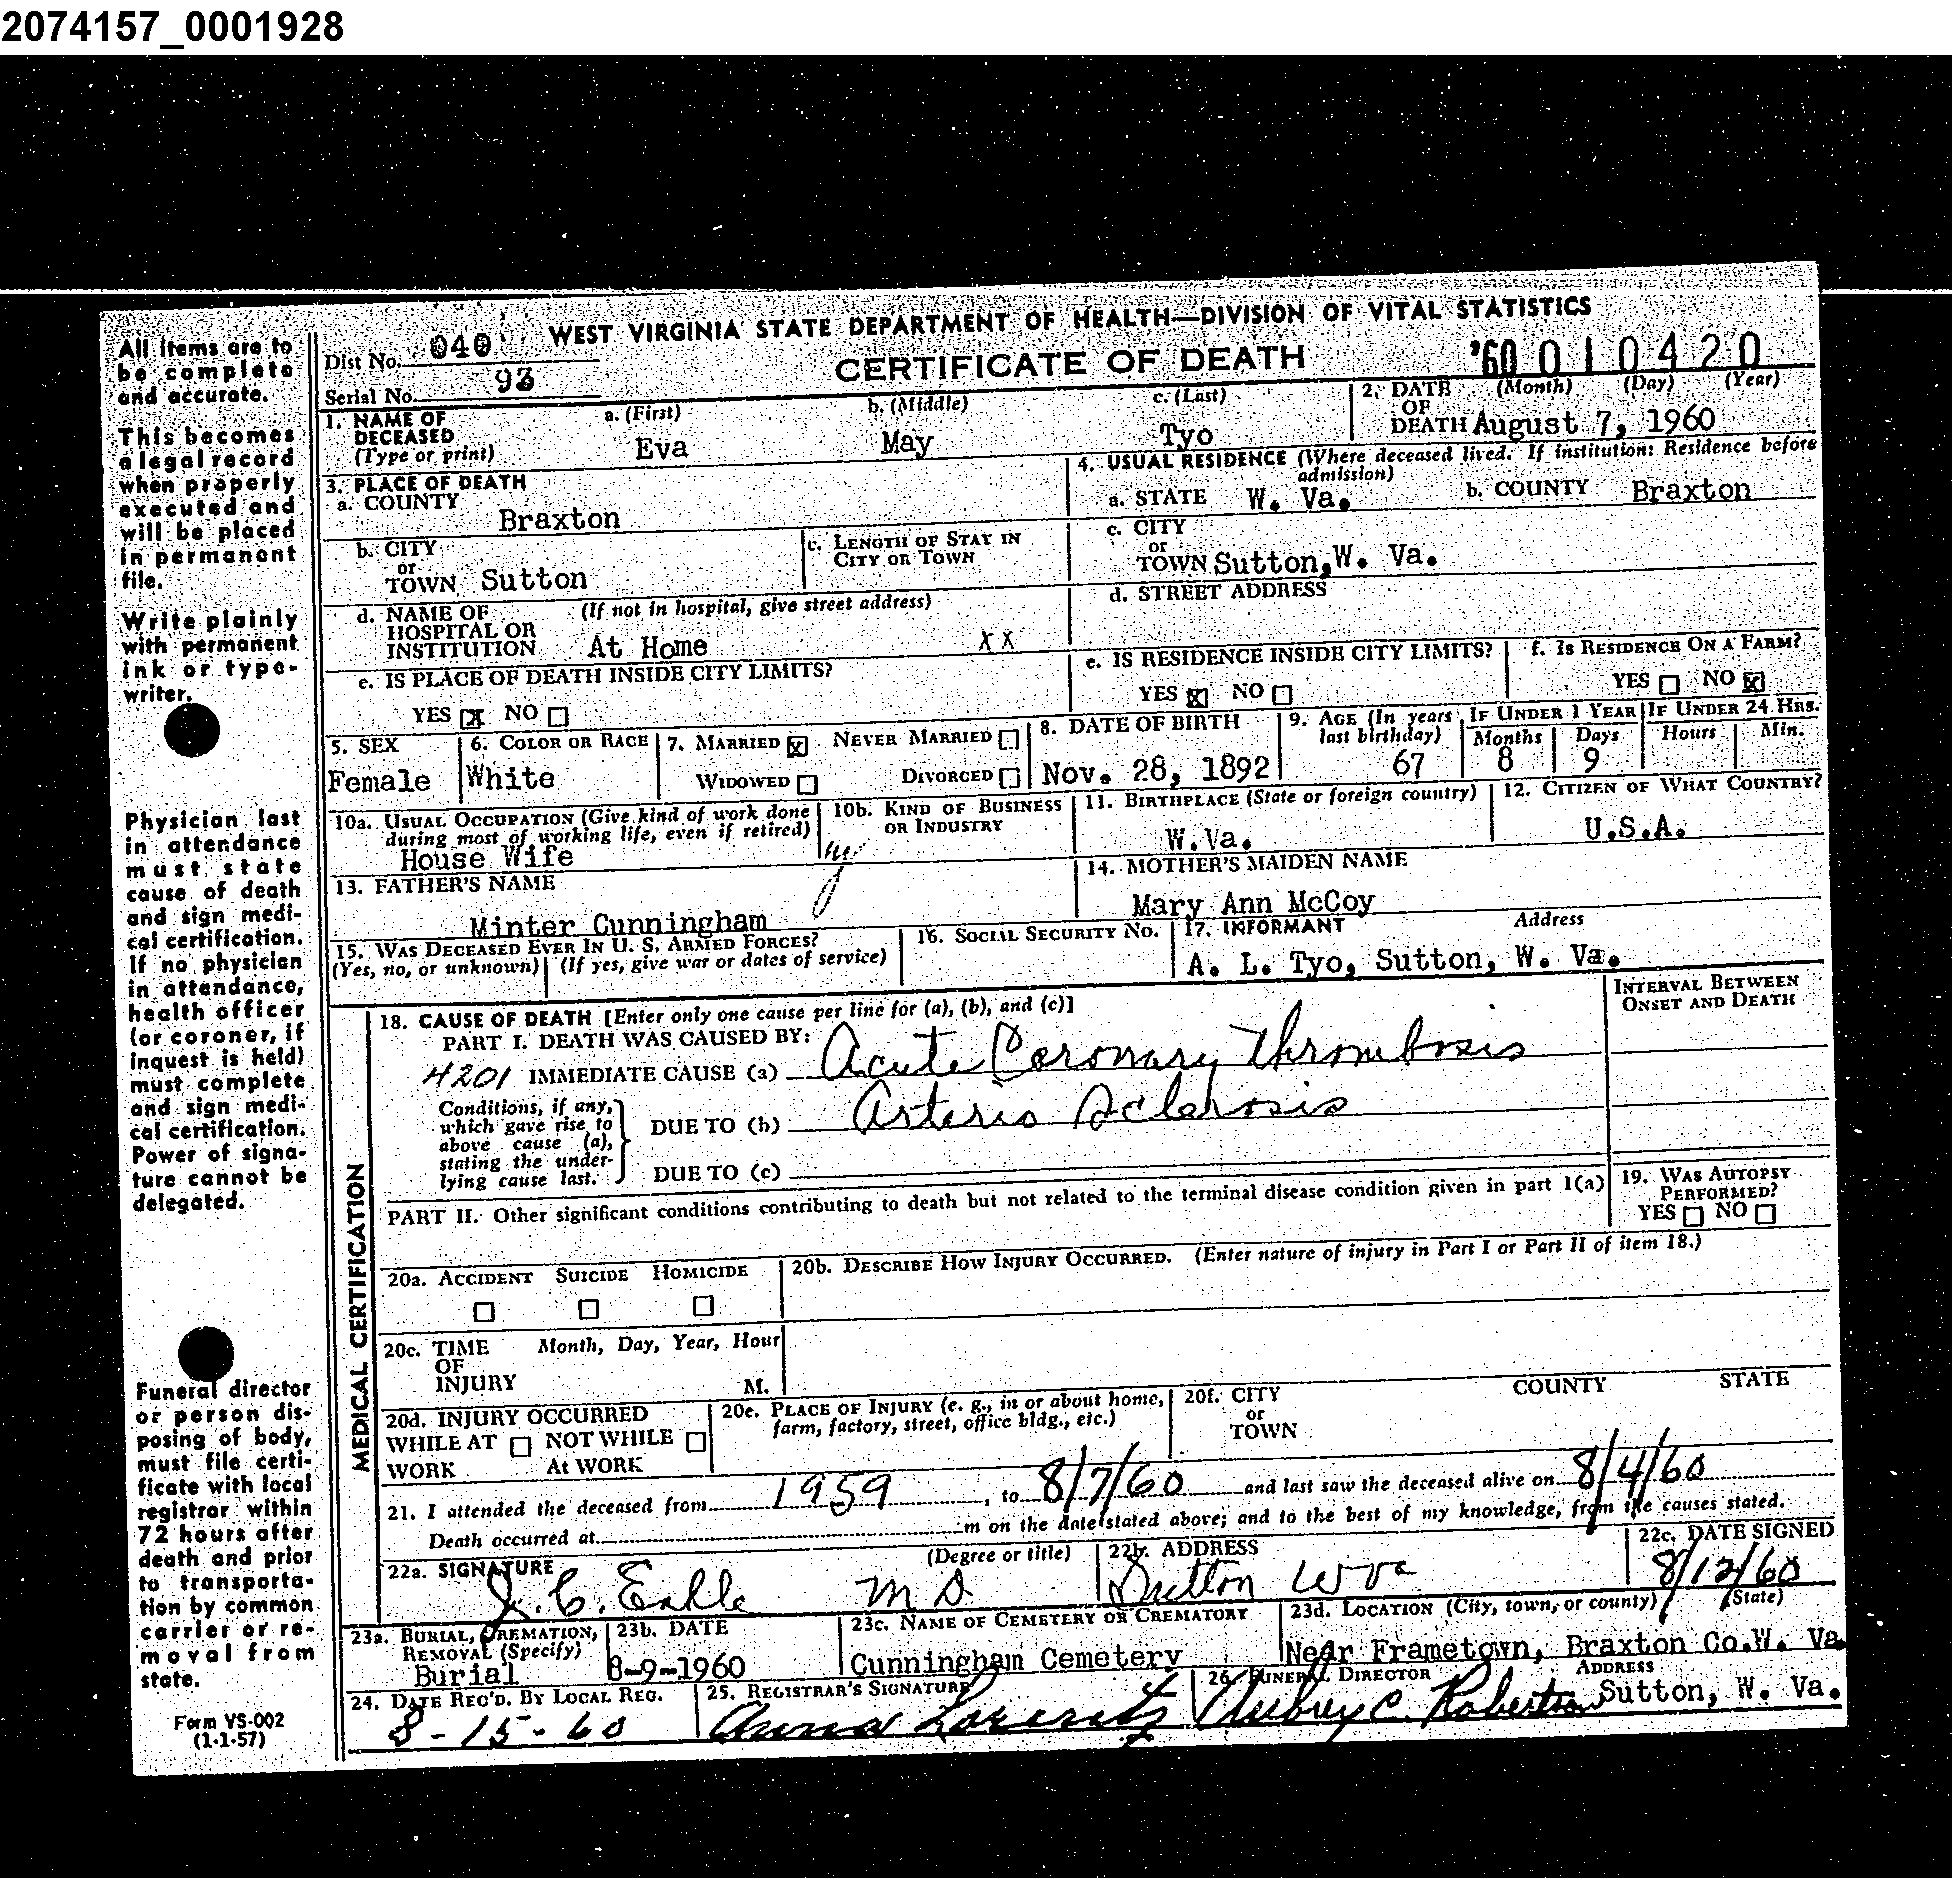 2074157_0001928
All items are to
be complete
and accurate.
This becomes
a legal record
when properly
executed and
will be placed
in permanent
file.
Write plainly
with permanent
ink or type-
writer.
Physician last
in attendance
must state
cause of death
and sign medi-
cal certification.
If no physician
in attendance,
health officer
(or coroner, if
inquest is held)
must complete
and sign medi-
cal certification.
Power of signa-
ture cannot be
delegated.
Funeral director
or person dis-
posing of body,
must file certi-
ficate with local
registrar within
72 hours after
death and prior
to transporta-
tion by common
carrier or re-
moval from
state.
Form VS-002
(1-1-57)
WEST VIRGINIA STATE DEPARTMENT OF HEALTH—DIVISION OF VITAL STATISTICS
Dist No. 040
CERTIFICATE OF DEATH '60 010420
Serial No. 93
1. NAME OF DECEASED (Type or print) a. (First) b. (Middle) c. (Last)
Eva May Tyo
2. DATE OF DEATH (Month) (Day) (Year)
August 7, 1960
3. PLACE OF DEATH
a. COUNTY Braxton
4. USUAL RESIDENCE (Where deceased lived. If institution: Residence before admission)
a. STATE W. Va. b. COUNTY Braxton
b. CITY or TOWN Sutton
c. LENGTH OF STAY IN CITY OR TOWN
c. CITY or TOWN Sutton, W. Va.
d. NAME OF HOSPITAL OR INSTITUTION (If not in hospital, give street address)
At Home XX
d. STREET ADDRESS
e. IS PLACE OF DEATH INSIDE CITY LIMITS?
YES X NO
e. IS RESIDENCE INSIDE CITY LIMITS?
YES X NO
f. IS RESIDENCE ON A FARM?
YES NO X
5. SEX
Female
6. COLOR OR RACE
White
7. MARRIED X NEVER MARRIED
WIDOWED DIVORCED
8. DATE OF BIRTH
Nov. 28, 1892
9. AGE (In years last birthday)
67
IF UNDER 1 YEAR
Months Days
8 9
IF UNDER 24 HRS.
Hours Min.
10a. USUAL OCCUPATION (Give kind of work done during most of working life, even if retired)
House Wife
10b. KIND OF BUSINESS OR INDUSTRY
11. BIRTHPLACE (State or foreign country)
W.Va.
12. CITIZEN OF WHAT COUNTRY?
U.S.A.
13. FATHER'S NAME
Minter Cunningham
14. MOTHER'S MAIDEN NAME
Mary Ann McCoy
15. WAS DECEASED EVER IN U. S. ARMED FORCES?
(Yes, no, or unknown) (If yes, give war or dates of service)
16. SOCIAL SECURITY NO.
17. INFORMANT Address
A. L. Tyo, Sutton, W. Va.
MEDICAL CERTIFICATION
18. CAUSE OF DEATH [Enter only one cause per line for (a), (b), and (c)]
INTERVAL BETWEEN ONSET AND DEATH
PART I. DEATH WAS CAUSED BY:
4201 IMMEDIATE CAUSE (a) Acute Coronary Thrombosis
Conditions, if any, which gave rise to above cause (a), stating the underlying cause last.
DUE TO (b) Arterio Sclerosis
DUE TO (c)
PART II. Other significant conditions contributing to death but not related to the terminal disease condition given in part 1(a)
19. WAS AUTOPSY PERFORMED?
YES NO
20a. ACCIDENT SUICIDE HOMICIDE
20b. DESCRIBE HOW INJURY OCCURRED. (Enter nature of injury in Part I or Part II of item 18.)
20c. TIME OF INJURY Month, Day, Year, Hour
M.
20d. INJURY OCCURRED
WHILE AT WORK NOT WHILE At WORK
20e. PLACE OF INJURY (e. g., in or about home, farm, factory, street, office bldg., etc.)
20f. CITY or TOWN COUNTY STATE
21. I attended the deceased from 1959, to 8/7/60 and last saw the deceased alive on 8/4/60
Death occurred at m on the date stated above; and to the best of my knowledge, from the causes stated.
22a. SIGNATURE (Degree or title)
J. C. Eakle M D
22b. ADDRESS
Sutton W Va
22c. DATE SIGNED
8/12/60
23a. BURIAL, CREMATION, REMOVAL (Specify)
Burial
23b. DATE
8-9-1960
23c. NAME OF CEMETERY OR CREMATORY
Cunningham Cemetery
23d. LOCATION (City, town, or county) (State)
Near Frametown, Braxton Co.W. Va.
24. DATE REC'D. BY LOCAL REG.
8-15-60
25. REGISTRAR'S SIGNATURE
Anna Lorentz
26. FUNERAL DIRECTOR ADDRESS
Aubrey C. Robertson Sutton, W. Va.